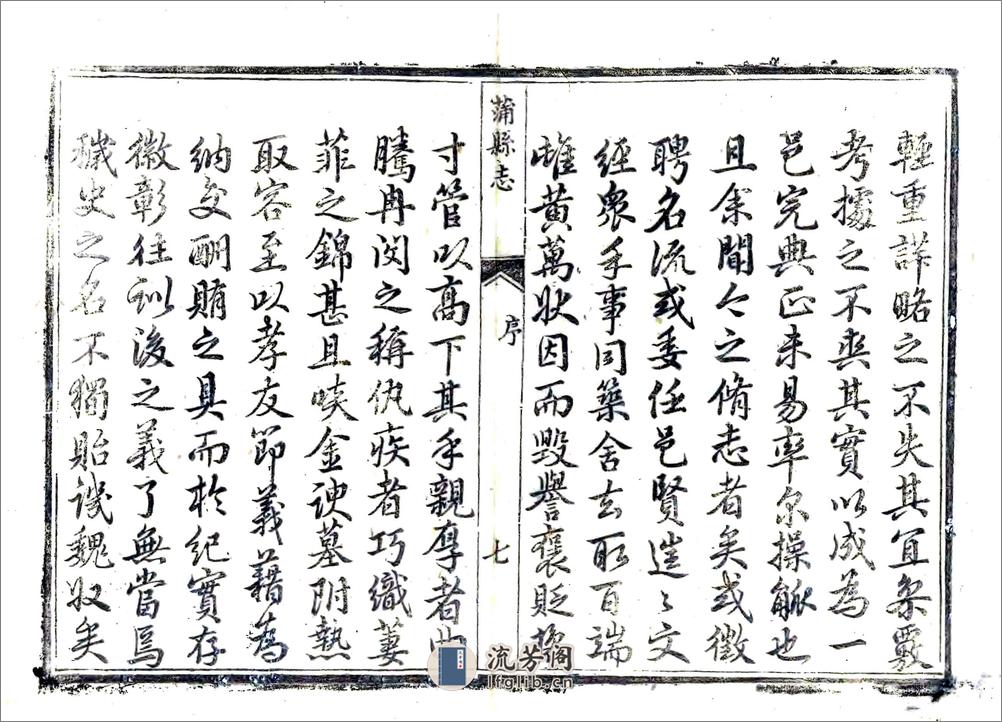 輕重詳略之不失其宜參覈
考據之不爽其實以成為一
邑完典正未易率尔操觚也
且余聞今之脩志者矣或徵
聘名流或委任邑賢文
經衆手事同築舍去取百端
雌黃萬狀因而毀譽褒貶
蒲縣志
序
七
寸管以高下其手親厚者
騰冉閔之稱仇疾者巧織萋
菲之錦甚且啖金諛墓附熱
取容至以孝友節義藉為
納交酬賄之具而於紀實存
徵彰往訓後之義了無當焉
穢史之名不獨貽譏魏收矣
流芳閣
lfglib.cn